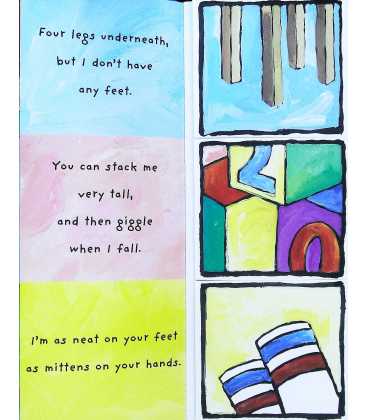 Four legs underneath,
but I don't have
any feet.
You can stack me
very tall,
and then giggle
when I fall.
I'm as neat on your feet
as mittens on your hands.
2
0